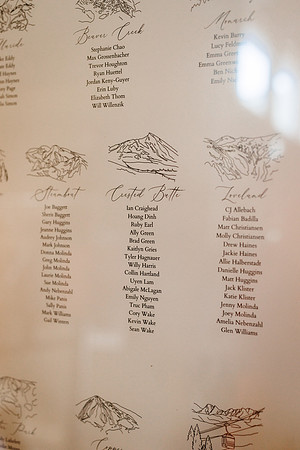 Beaver Creek
Stephanie Chao
Max Grossenbacher
Trevor Houghton
Ryan Huettel
Jordan Keny-Guyer
Erin Luby
Elizabeth Thom
Will Willenzik
Monarch
Kevin
Lucy
Emma
Emma
Ben
Emily
Steamboat
Joe Baggett
Sheris Baggett
Gary Huggins
Joanne Huggins
Audrey Johnson
Mark Johnson
Donna Molinda
Greg Molinda
John Molinda
Laura Molinda
Sue Molinda
Andy Nebenzahl
Mike Panis
Sally Panis
Mark Williams
Gail Winters
Crested Butte
Ian Craighead
Hoang Dinh
Ruby Earl
Ally Green
Brad Green
Kaitlyn Gries
Tyler Hagnauer
Willy Harris
Collin Huntland
Uyen Lam
Abigale McLagan
Emily Nguyen
Truc Pham
Cory Wake
Kevin Wake
Sean Wake
Loveland
CJ Allebach
Fabian Badilla
Matt Christiansen
Molly Christiansen
Drew Haines
Jackie Haines
Allie Halberstadt
Danielle Huggins
Matt Huggins
Jack Klister
Katie Klister
Jenny Molinda
Joey Molinda
Amelia Nebenzahl
Glen Williams
Park